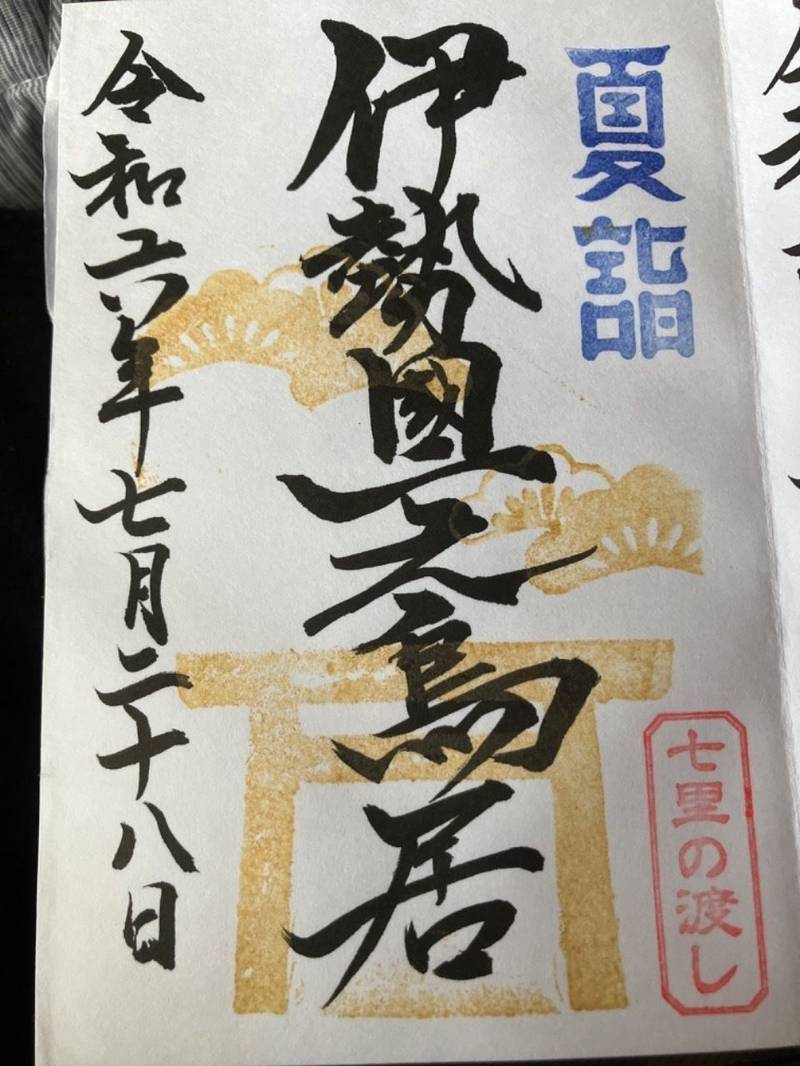 夏詣
七里の渡し
伊勢國一之鳥居
令和六年七月二十八日